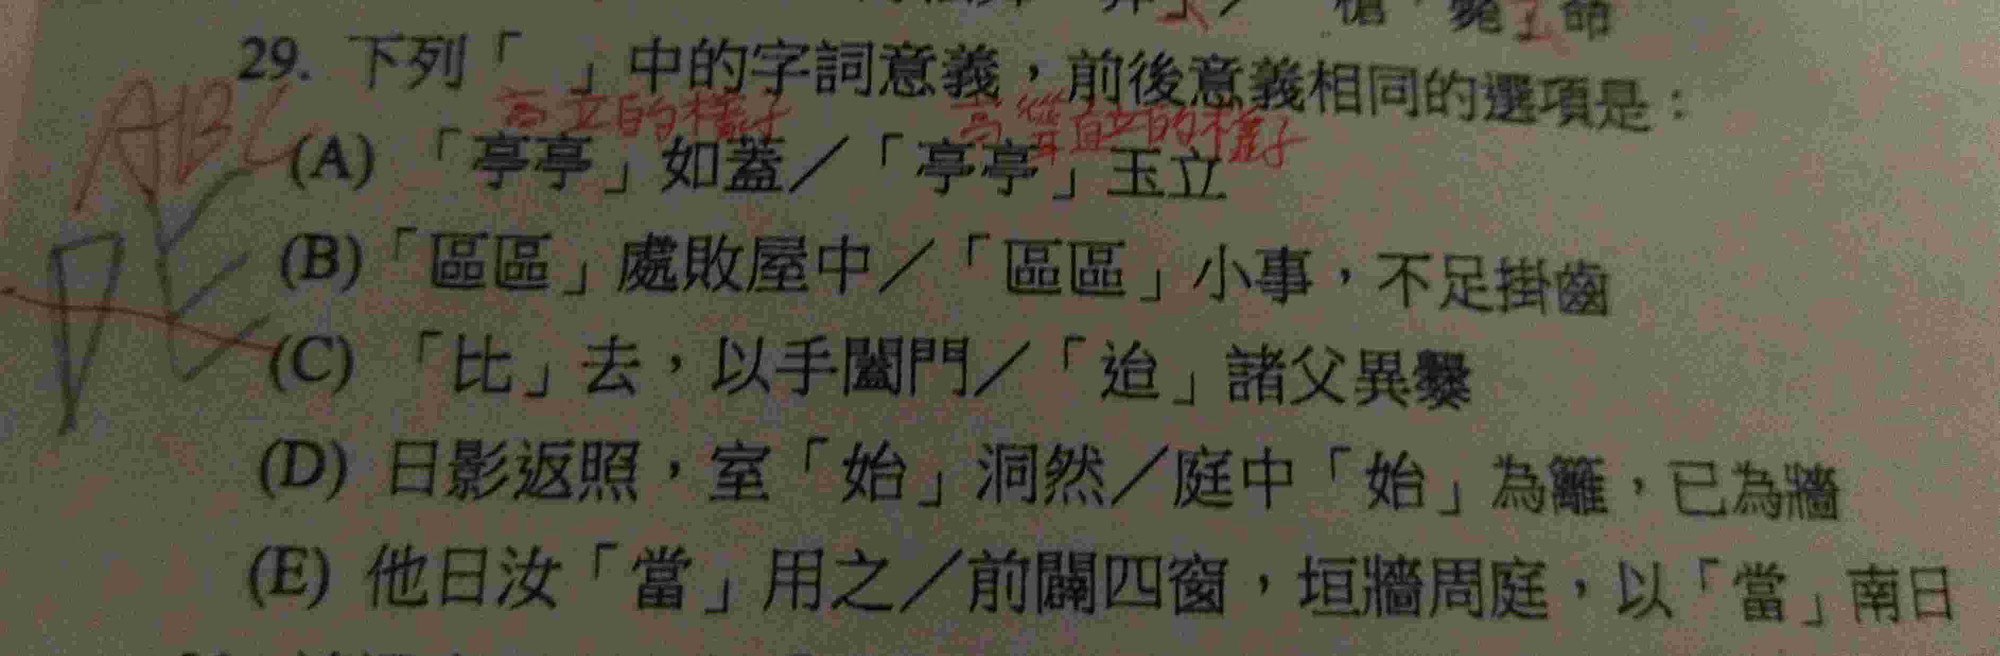 槍 斃 命
29. 下列「 」中的字詞意義，前後意義相同的選項是：
ABC
高立的樣子 高聳直立的樣子
(A) 「亭亭」如蓋／「亭亭」玉立
(B)「區區」處敗屋中／「區區」小事，不足掛齒
(C) 「比」去，以手闔門／「迨」諸父異爨
(D) 日影返照，室「始」洞然／庭中「始」為籬，已為牆
(E) 他日汝「當」用之／前闢四窗，垣牆周庭，以「當」南日